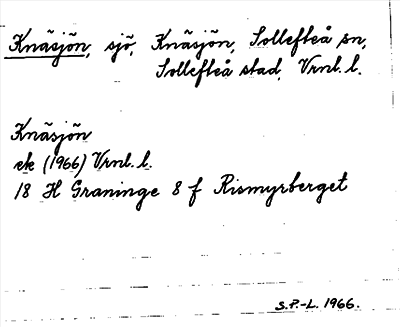 Knäsjön, sjö, Knäsjön, Sollefteå sn,
Sollefteå stad, Vrnl. l.
Knäsjön
ek (1966) Vrnl. l.
18 H Graninge 8 f Rismyrberget
S.P.-L. 1966.